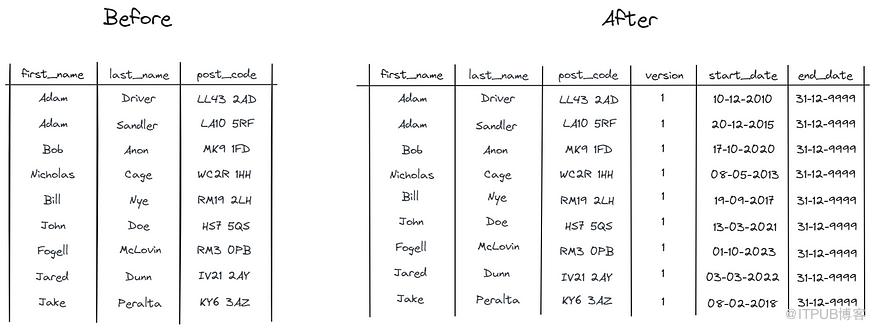 Before
first_name last_name post_code
Adam Driver LL43 2AD
Adam Sandler LA10 5RF
Bob Anon MK9 1FD
Nicholas Cage WC2R 1HH
Bill Nye RM19 2LH
John Doe HS7 5QS
Fogell McLovin RM3 0PB
Jared Dunn IV21 2AY
Jake Peralta KY6 3AZ
After
first_name last_name post_code version start_date end_date
Adam Driver LL43 2AD 1 10-12-2010 31-12-9999
Adam Sandler LA10 5RF 1 20-12-2015 31-12-9999
Bob Anon MK9 1FD 1 17-10-2020 31-12-9999
Nicholas Cage WC2R 1HH 1 08-05-2013 31-12-9999
Bill Nye RM19 2LH 1 19-09-2017 31-12-9999
John Doe HS7 5QS 1 13-03-2021 31-12-9999
Fogell McLovin RM3 0PB 1 01-10-2023 31-12-9999
Jared Dunn IV21 2AY 1 03-03-2022 31-12-9999
Jake Peralta KY6 3AZ 1 08-02-2018 31-12-9999
@ITPUB博客